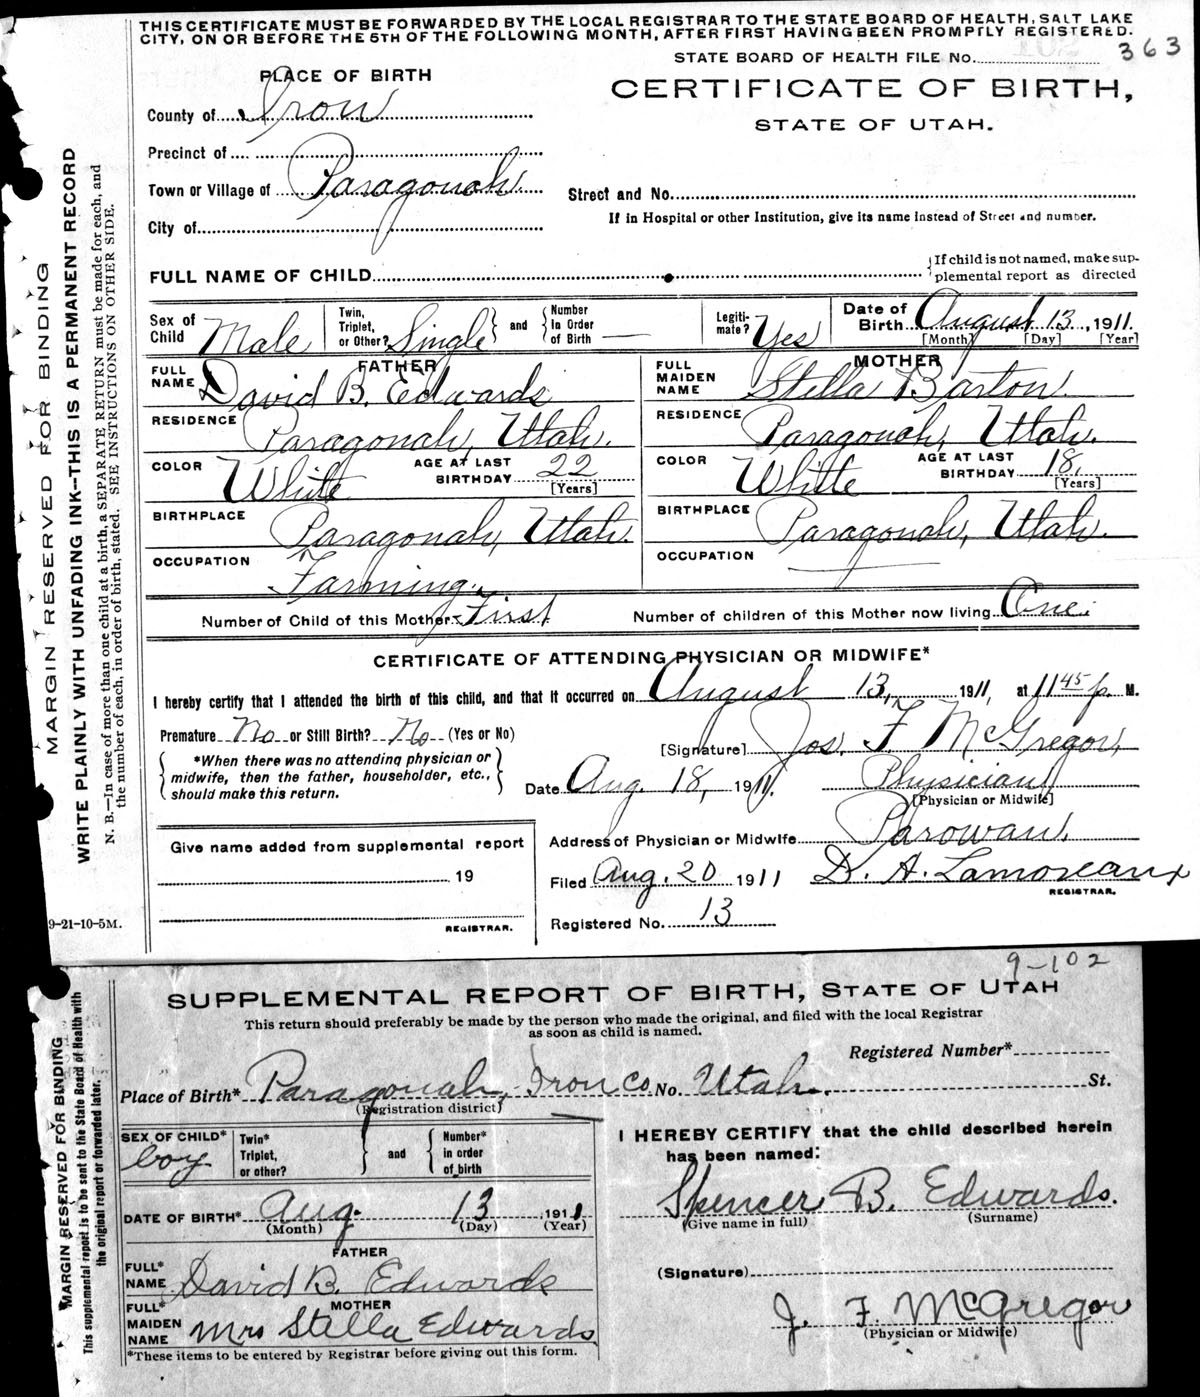 THIS CERTIFICATE MUST BE FORWARDED BY THE LOCAL REGISTRAR TO THE STATE BOARD OF HEALTH, SALT LAKE
CITY, ON OR BEFORE THE 5TH OF THE FOLLOWING MONTH, AFTER FIRST HAVING BEEN PROMPTLY REGISTERED.
STATE BOARD OF HEALTH FILE No. 363
PLACE OF BIRTH
CERTIFICATE OF BIRTH,
STATE OF UTAH.
County of Iron
Precinct of
Town or Village of Paragonah
Street and No.
If in Hospital or other Institution, give its name instead of Street and number.
City of
FULL NAME OF CHILD
If child is not named, make sup-
plemental report as directed
Sex of Child Male
Twin, Triplet, or Other? Single and Number in Order of Birth —
Legiti-mate? Yes
Date of Birth August 13, 1911.
[Month] [Day] [Year]
FATHER
FULL NAME David B. Edwards
RESIDENCE Paragonah, Utah.
COLOR White AGE AT LAST BIRTHDAY 22 [Years]
BIRTHPLACE Paragonah, Utah.
OCCUPATION Farming.
MOTHER
FULL MAIDEN NAME Stella Barton.
RESIDENCE Paragonah, Utah.
COLOR White AGE AT LAST BIRTHDAY 18. [Years]
BIRTHPLACE Paragonah, Utah.
OCCUPATION
Number of Child of this Mother First
Number of children of this Mother now living One.
CERTIFICATE OF ATTENDING PHYSICIAN OR MIDWIFE*
I hereby certify that I attended the birth of this child, and that it occurred on August 13, 1911, at 11 45 p. M.
Premature No or Still Birth? No (Yes or No)
*When there was no attending physician or
midwife, then the father, householder, etc.,
should make this return.
[Signature] Jos. F. McGregor,
Date Aug. 18, 1911. Physician
[Physician or Midwife]
Address of Physician or Midwife Parowan.
Give name added from supplemental report
19
REGISTRAR.
Filed Aug. 20 1911 D. A. Lamoreaux
REGISTRAR.
Registered No. 13
9-21-10-5M.
MARGIN RESERVED FOR BINDING
WRITE PLAINLY WITH UNFADING INK—THIS IS A PERMANENT RECORD
N. B.—In case of more than one child at a birth, a SEPARATE RETURN must be made for each, and
the number of each, in order of birth, stated. SEE INSTRUCTIONS ON OTHER SIDE.
9-102
SUPPLEMENTAL REPORT OF BIRTH, STATE OF UTAH
This return should preferably be made by the person who made the original, and filed with the local Registrar
as soon as child is named.
Registered Number*
Place of Birth* Paragonah, Iron Co. No. Utah. St.
(Registration district)
SEX OF CHILD* boy
Twin* Triplet, or other? and Number* in order of birth
DATE OF BIRTH* Aug. 13 1911
(Month) (Day) (Year)
FATHER
FULL* NAME David B. Edwards
MOTHER
FULL* MAIDEN NAME Mrs Stella Edwards
*These items to be entered by Registrar before giving out this form.
I HEREBY CERTIFY that the child described herein
has been named:
Spencer B. Edwards.
(Give name in full) (Surname)
(Signature)
J. F. McGregor
(Physician or Midwife)
MARGIN RESERVED FOR BINDING
This supplemental report is to be sent to the State Board of Health with
the original report or forwarded later.